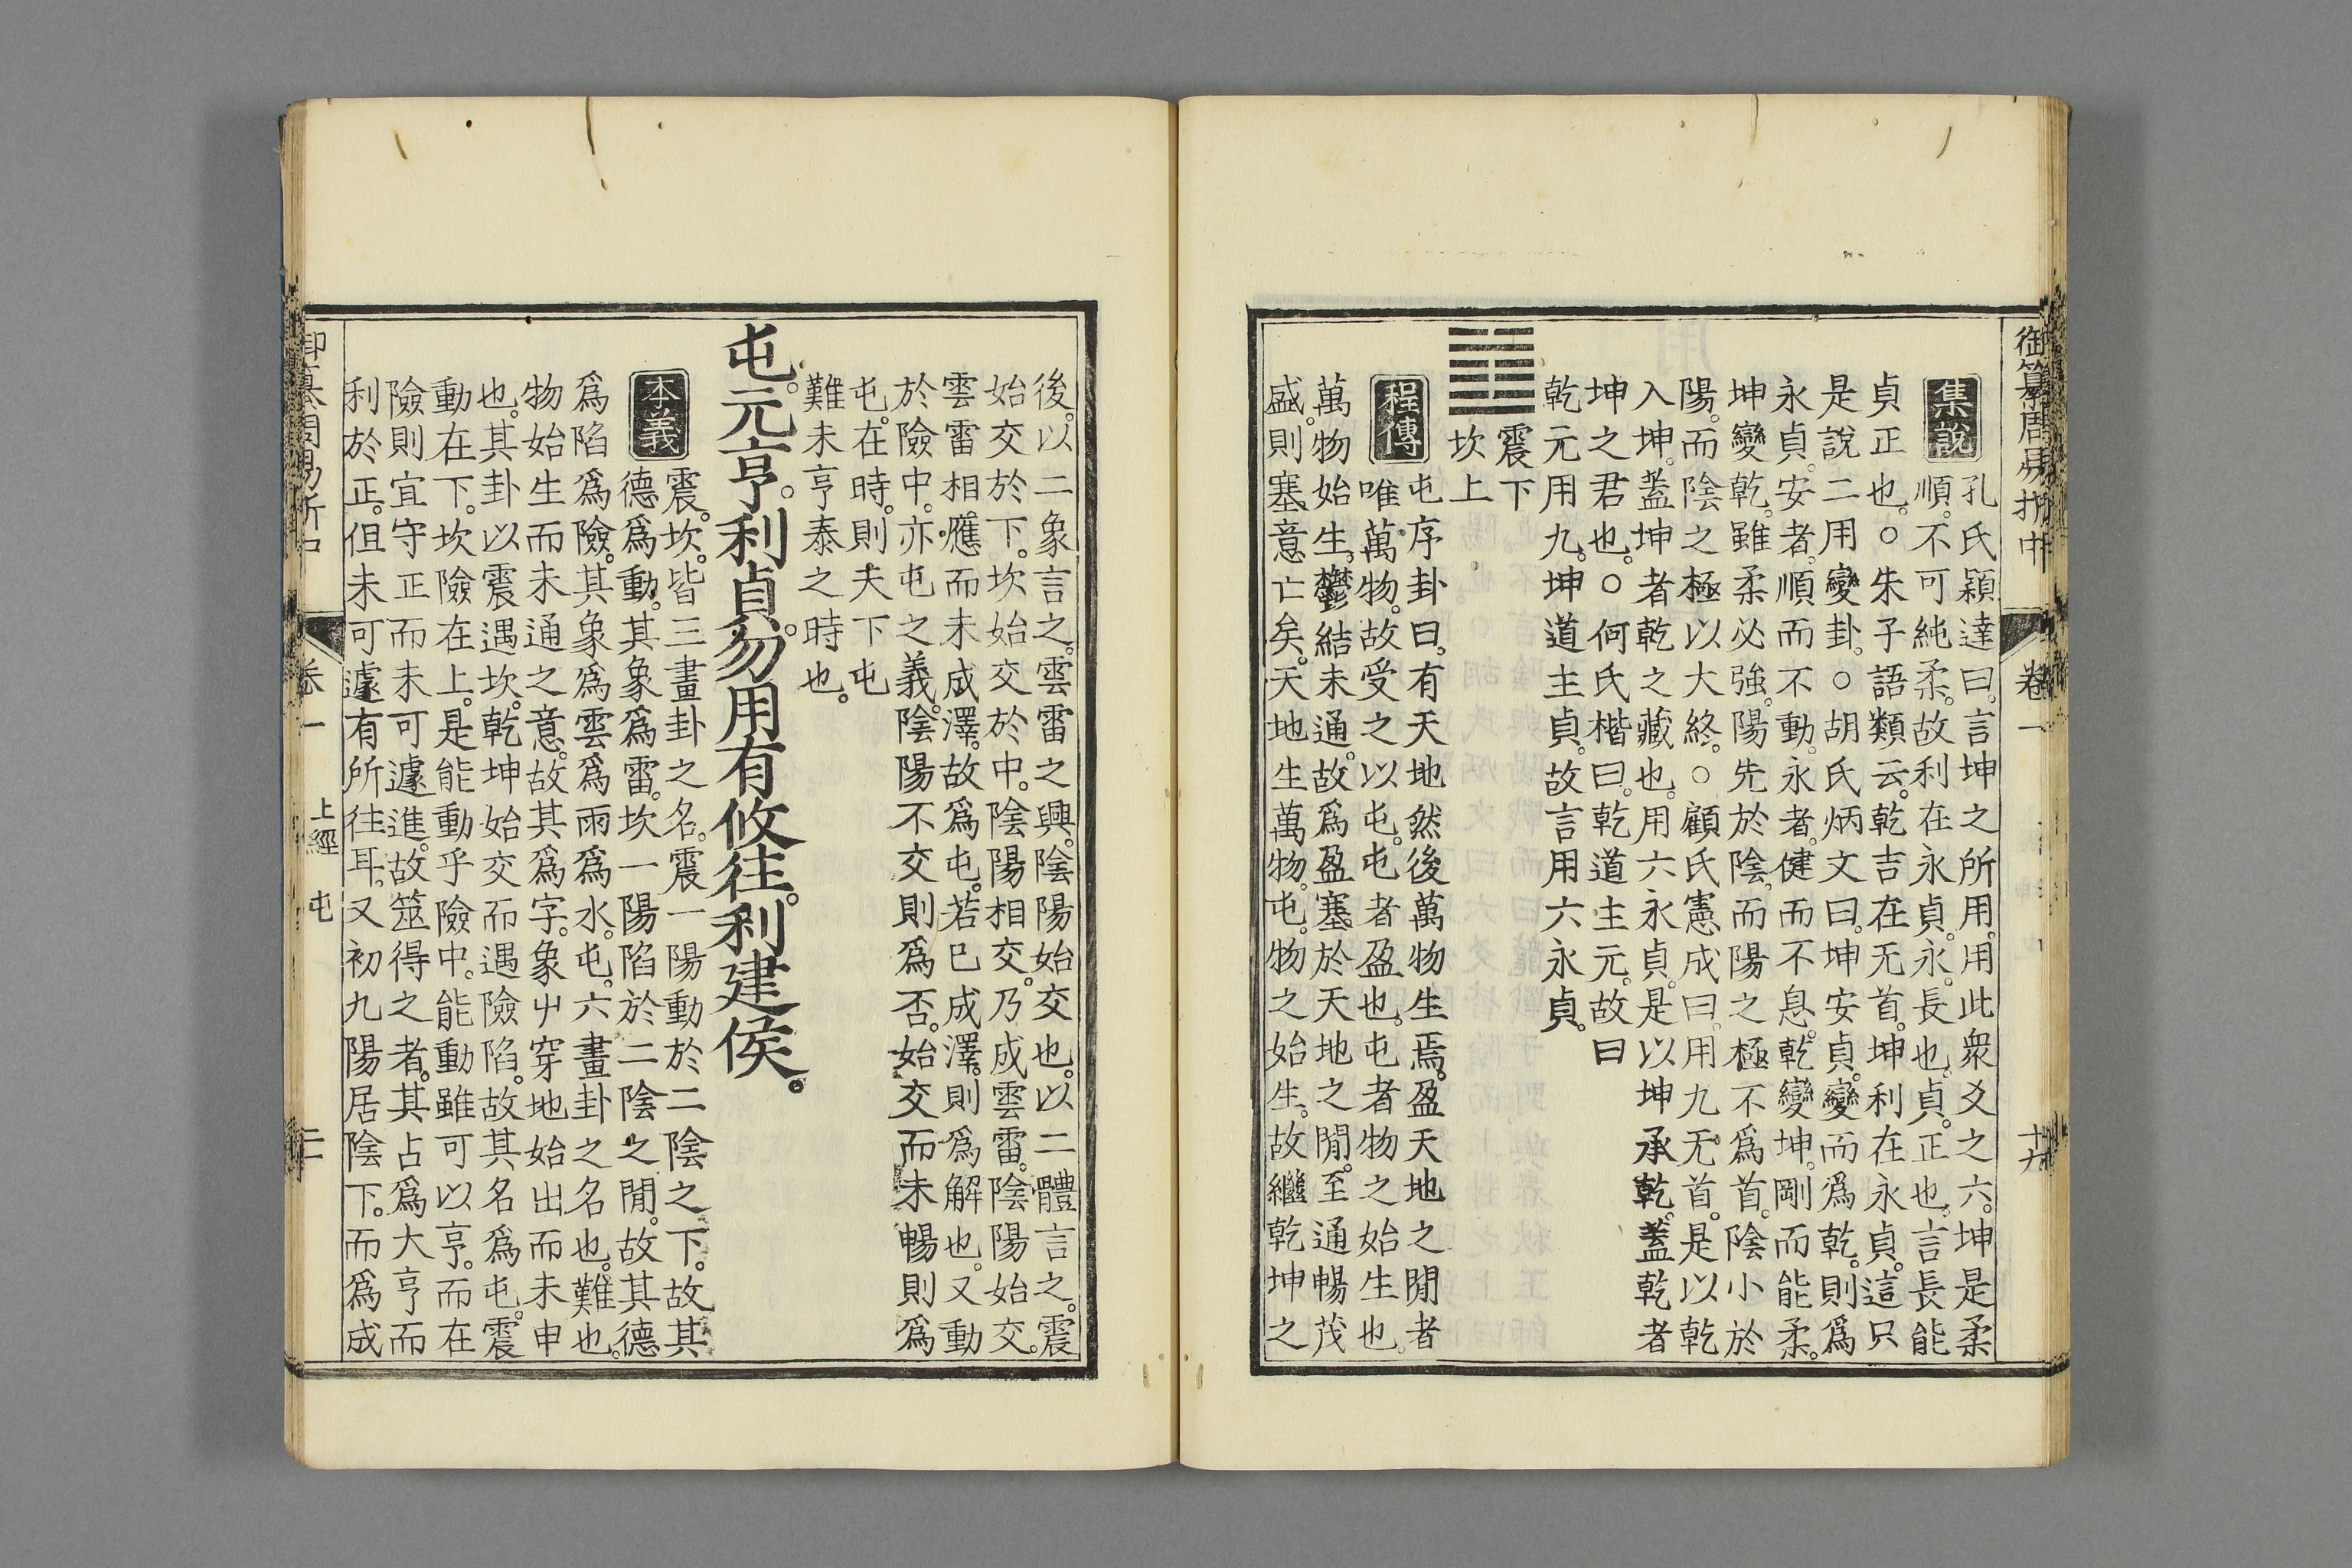 御纂周易折中
卷一
十九
集說
孔氏穎達曰。言坤之所用。用此衆爻之六。坤是柔
順。不可純柔。故利在永貞。永。長也。貞。正也。言長能
貞正也。○朱子語類云。乾吉在无首。坤利在永貞。這只
是說二用變卦。○胡氏炳文曰。坤安貞。變而爲乾。則爲
永貞。安者。順而不動。永者。健而不息。乾變坤。剛而能柔。
坤變乾。雖柔必強。陽先於陰。而陽之極不爲首。陰小於
陽。而陰之極以大終。○顧氏憲成曰。用九无首。是以乾
入坤。蓋坤者乾之藏也。用六永貞。是以坤承乾。蓋乾者
坤之君也。○何氏楷曰。乾道主元。故曰
乾元用九。坤道主貞。故言用六永貞。
震下
坎上
程傳
屯序卦曰。有天地然後萬物生焉。盈天地之閒者
唯萬物。故受之以屯。屯者盈也。屯者物之始生也。
萬物始生。鬱結未通。故爲盈塞。於天地之閒。至通暢茂
盛。則塞意亡矣。天地生萬物。屯。物之始生。故繼乾坤之
後。以二象言之。雲雷之興。陰陽始交也。以二體言之。震
始交於下。坎始交於中。陰陽相交。乃成雲雷。陰陽始交。
雲雷相應而未成澤。故爲屯。若已成澤。則爲解也。又動
於險中。亦屯之義。陰陽不交則爲否。始交而未暢則爲
屯。在時。則天下屯
難未亨泰之時也。
屯。元亨。利貞。勿用有攸往。利建侯。
本義
震。坎。皆三畫卦之名。震一陽動於二陰之下。故其
德爲動。其象爲雷。坎一陽陷於二陰之閒。故其德
爲陷爲險。其象爲雲爲雨爲水。屯。六畫卦之名也。難也。
物始生而未通之意。故其爲字。象屮穿地始出而未申
也。其卦以震遇坎。乾坤始交而遇險陷。故其名爲屯。震
動在下。坎險在上。是能動乎險中。能動雖可以亨。而在
險則宜守正而未可遽進。故筮得之者。其占爲大亨而
利於正。但未可遽有所往耳。又初九陽居陰下。而爲成
卷一
上經
屯